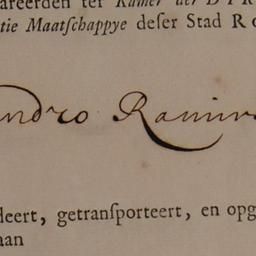 areerden ter Kamer der DIR
tie Maatſchappye deſer Stad R
ndro Ramir
deert, getranſporteert, en opg
aan